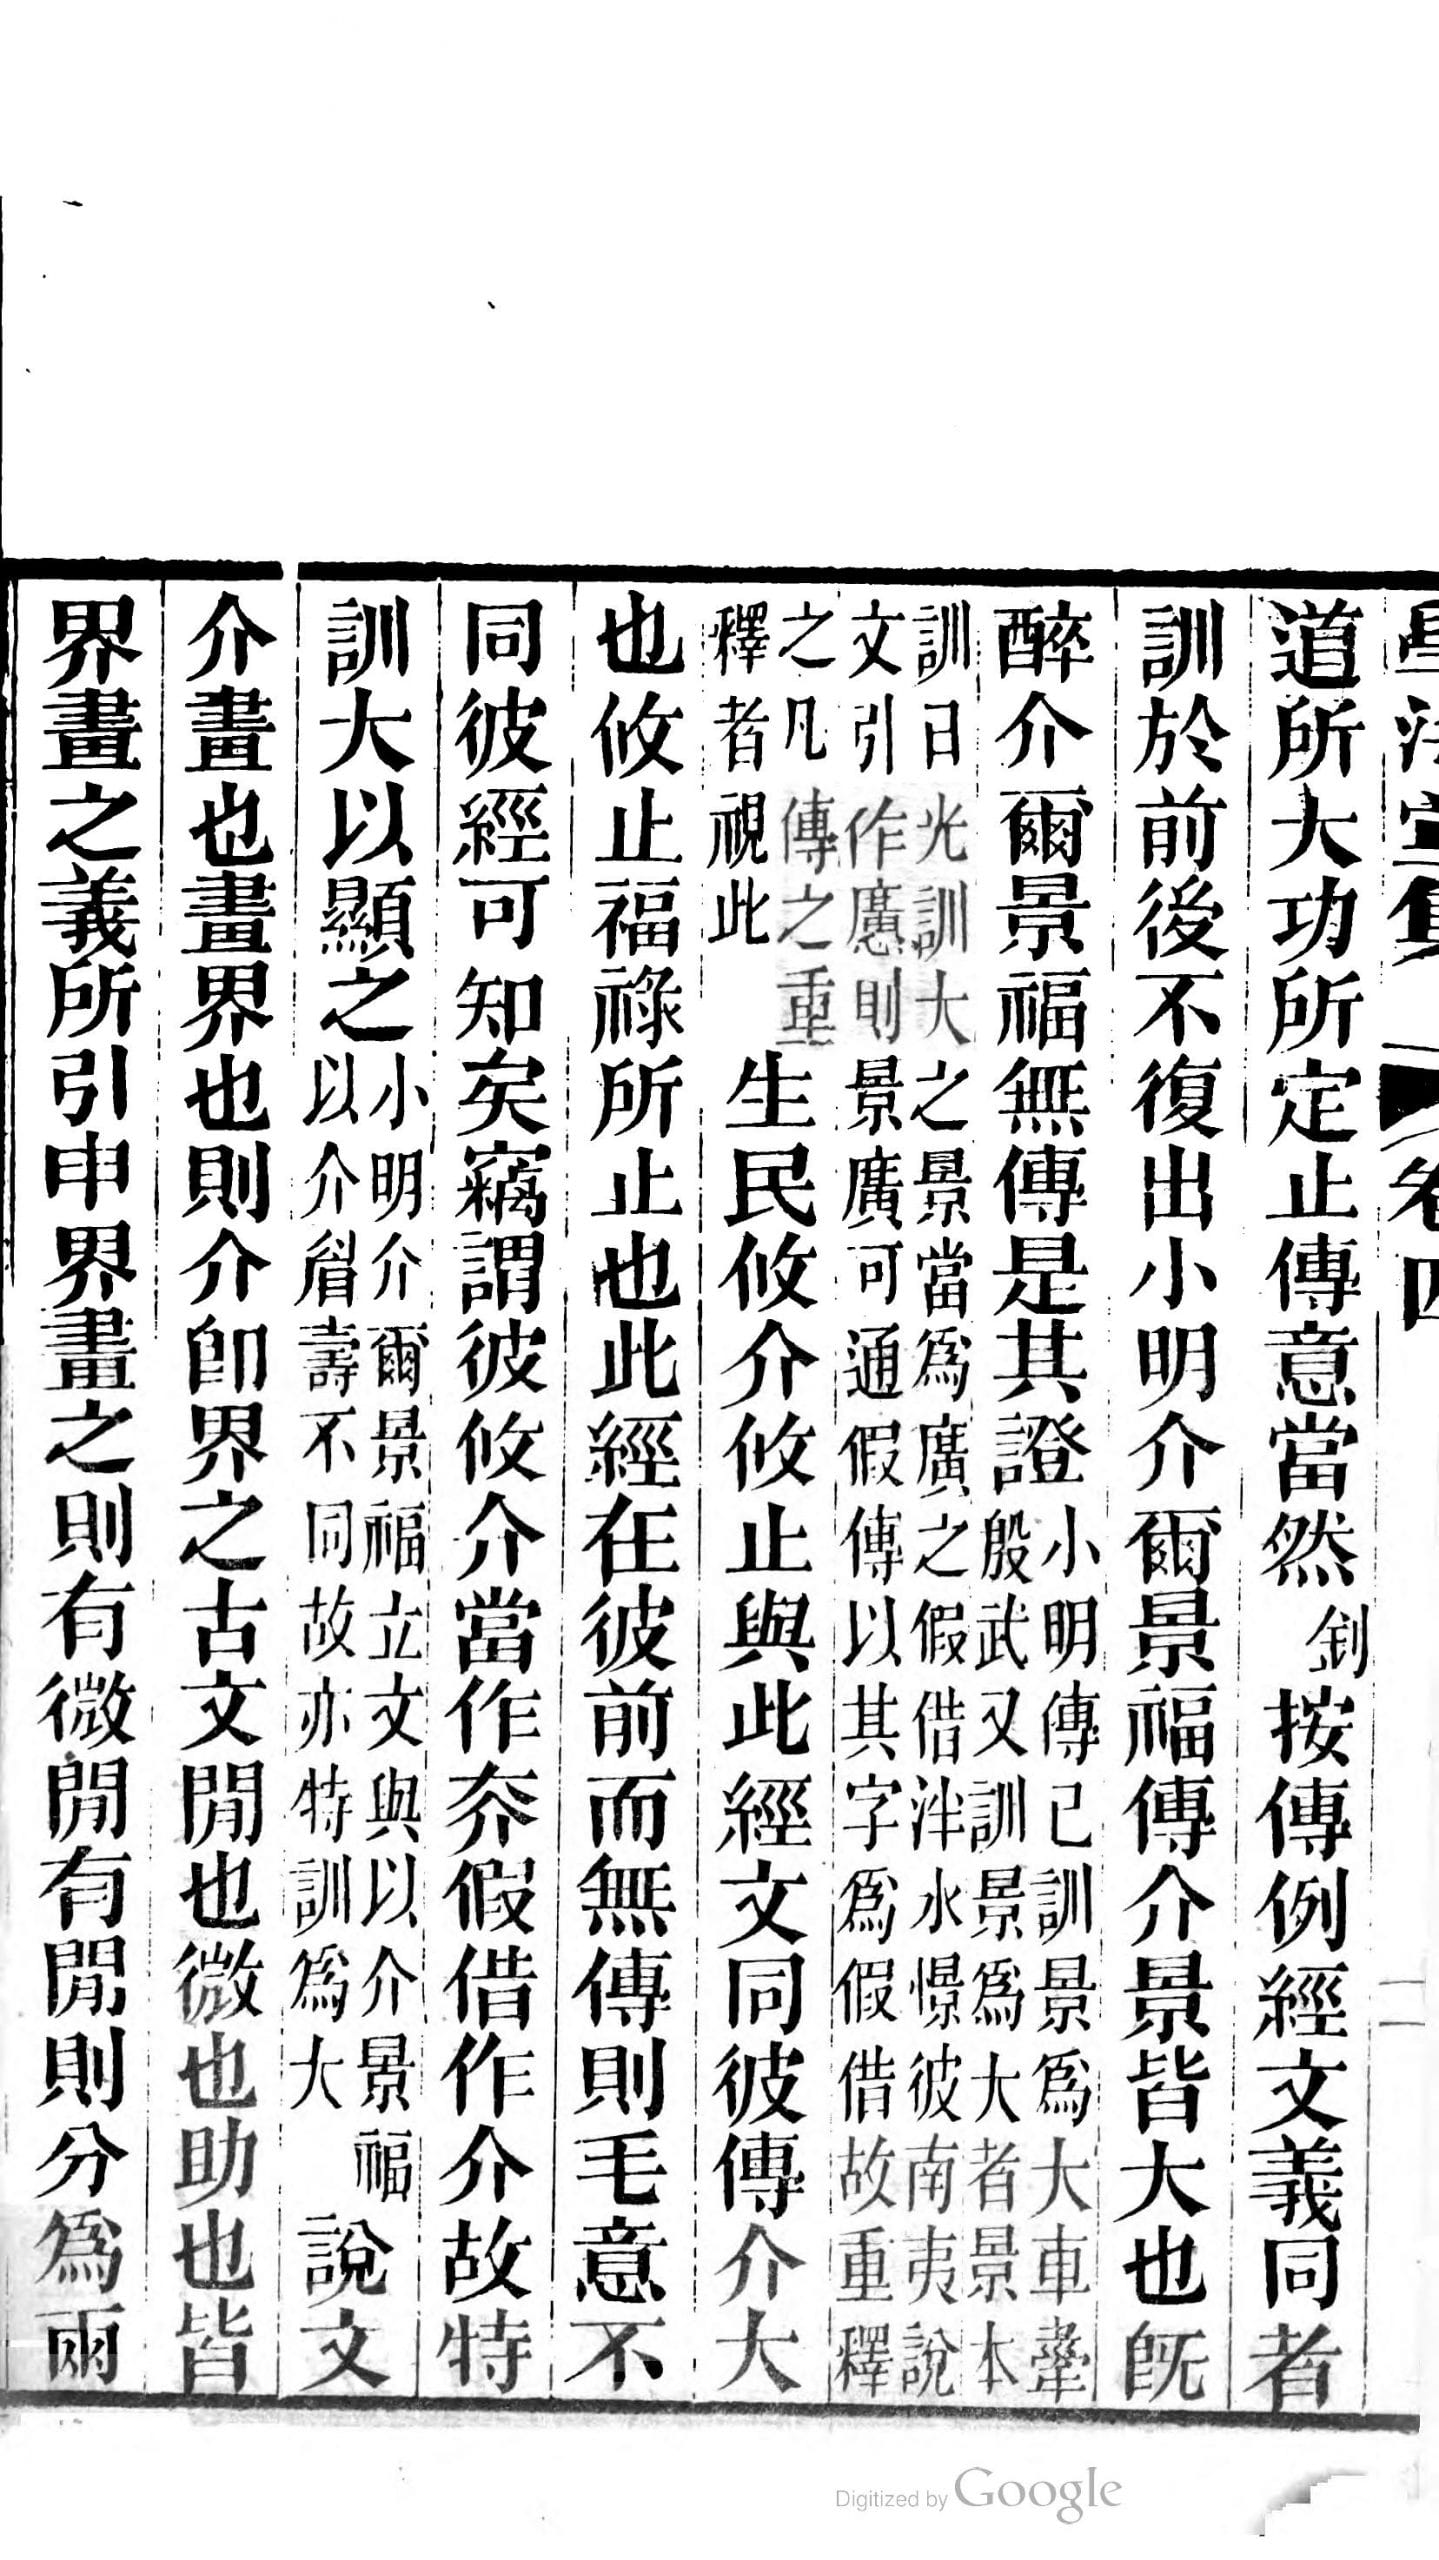 卷四
二
道所大功所定止傳意當然釗按傳例經文義同者
訓於前後不復出小明介爾景福傳介景皆大也旣
醉介爾景福無傳是其證
小明傳已訓景爲大車舝
殷武又訓景爲大者景本
訓日光訓大之景當爲廣之假借泮水憬彼南夷說
文引作懬則景廣可通假傳以其字爲假借故重釋
之凡傳之重
釋者視此
生民攸介攸止與此經文同彼傳介大
也攸止福祿所止也此經在彼前而無傳則毛意不
同彼經可知矣竊謂彼攸介當作夰假借作介故特
訓大以顯之
小明介爾景福立文與以介景福
以介眉壽不同故亦特訓爲大
說文
介畫也畫界也則介卽界之古文閒也微也助也皆
界畫之義所引申界畫之則有微閒有閒則分爲兩
Digitized by Google